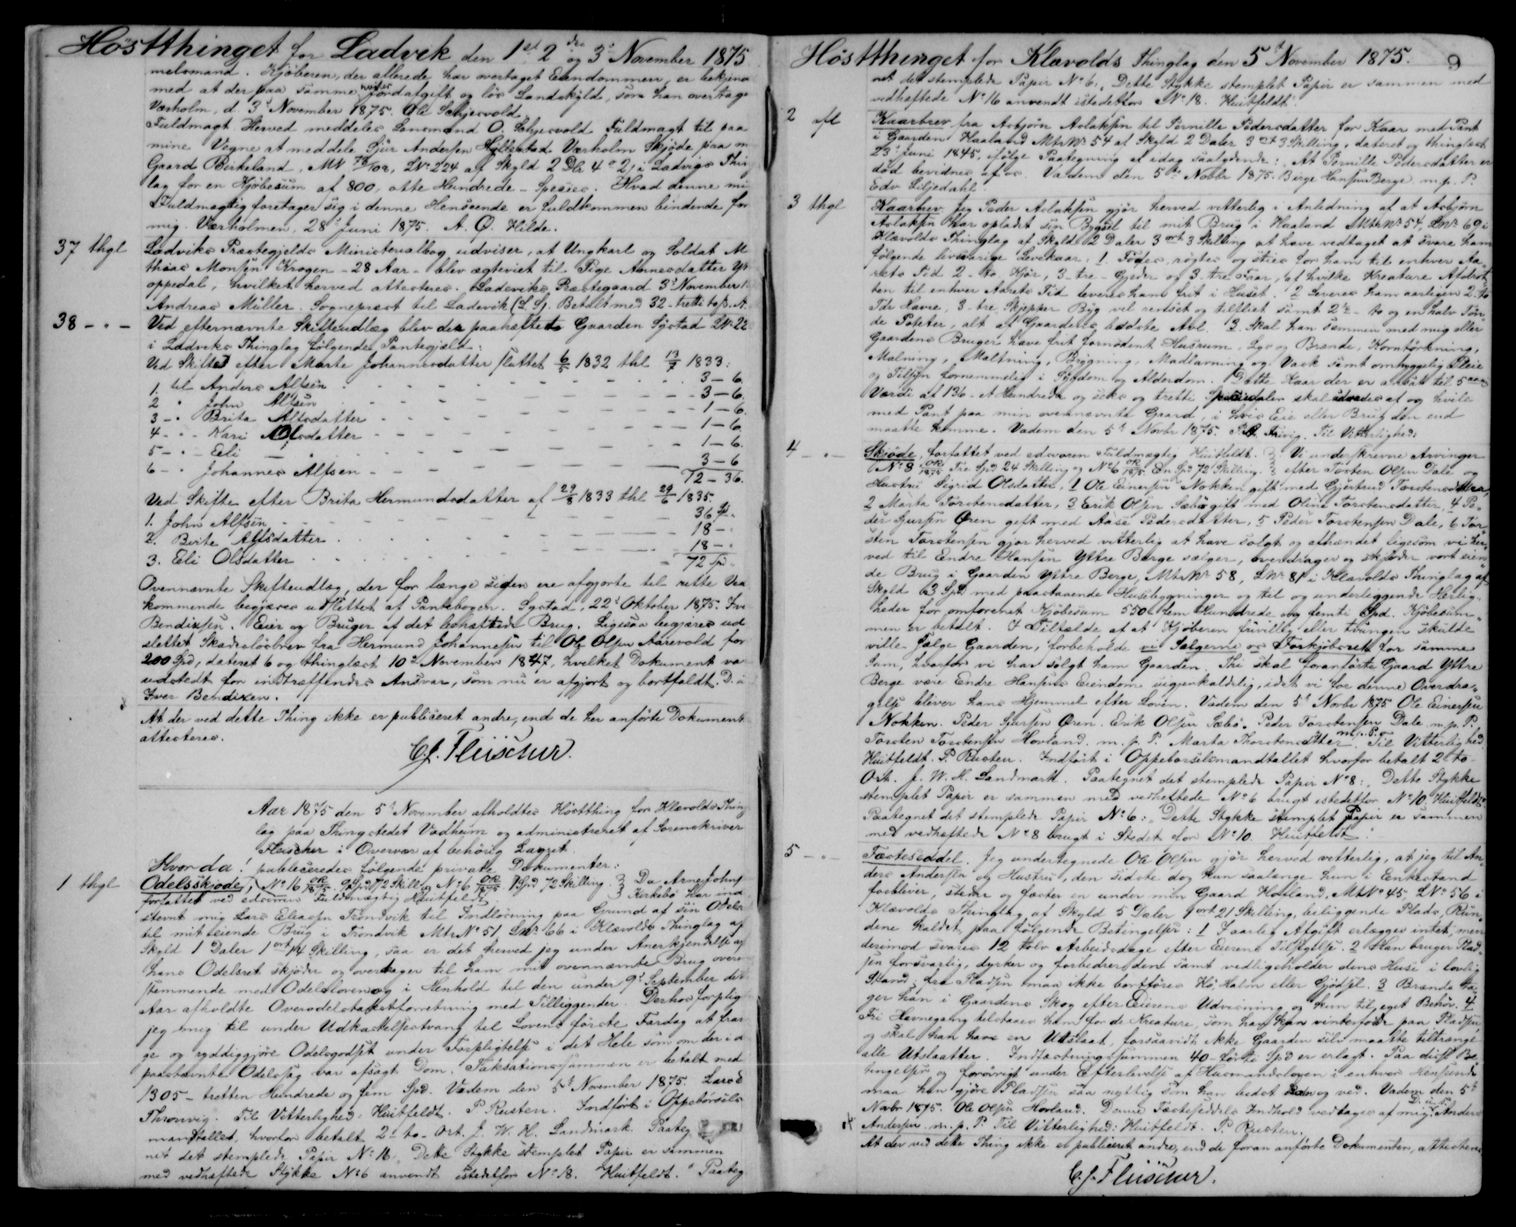 Høstthinget for Ladvik den 1st 2den og 3d November 1875
melsmand. Kjøberen, der allerede har overtaget Eiendommen, er bekjendt
med at der paa samme hviler Jordafgift og løs Landskyld, som han overtage
Værholm, d. 3d November 1875. Ole Schjervold.
Fuldmagt Herved meddeles Lensmand O. Schjervold Fuldmagt til paa
mine Vegne at meddele Sjur Andersen Værholm Skjøde paa m
Gaard Berkeland, af Skyld 2 Dlr 4 2, i Ladvigs Thin
lag for en Kjøbesum af 800, otte Hundrede Spesier. Hvad denne min
Fuldmægtig foretager sig i denne Henseende er fuldkommen bindende for
mig. Værholmen, 28d Juni 1875. A. O. Hilde.
37 thgl Ladviks Præstegjelds Ministerialbog udviser, at Ungkarl og Soldat M
thias Monsen Krogen - 28 Aar - blev ægteviet til Pige Aarnesdatter Yt
oppedal, hvilket herved attesteres. Ladviks Præstegaard 3d November 1
Andreas Müller, Sogneprest til Ladevik (L. S.) Betalt med 32 - tretti to ß. A.
38 - " - Ved efternævnte Skifteudlæg blev der paahæftede Gaarden Systad LNr 22
i Ladviks Thinglag følgende Pantegjæld:
Ved Skiftet efter Marte Johannesdatter sluttet 6/5 1832 thl 13/7 1833.
1. til Anders Alfsen - - - 3 - 6
2 - " John Alfsen - - - 3 - 6.
3 - " Brita Alfsdatter - - - 1 - 6.
4 - " - Kari Olsdatter - - - 1 - 6
5 - " - Eli - - - 1 - 6.
6 - " Johannes Alfsen - - - 3 - 6
72 - 36.
Ved Skifte efter Brita Hermundsdatter af 29/8 1833 thl 29/6 1835
1. John Alfsen - - - 36 ß.
2. Brite Alfsdatter - - - 18 -
3. Eli Olsdatter - - - 18 - "
72 ß.
Ovennævnte Skifteudlæg, der for længe siden ere afgjorte til rette Ved
kommende begjæres udslettet af Pantebogen. Systad, 22d Oktober 1875. Ive
Bendixen. Eier og Bruger af det behæftede Brug. Ligesaa begjæres ud
slettet Skadesløsbrev fra Hermund Johannesen til Ole Olsen Aarevold for
200 Spd, dateret 6 og thinglæst 10d November 1847, hvilket Dokument va
udstedt for indtræffendes Ansvar, som nu er afgjort og bortfaldt. D. s.
Iver Bendixen.
At der ved dette Thing ikke er publiceret andre, end de her anførte Dokumente
attesteres.
C. J. Fleischer.
Aar 1875 den 5d November afholdtes Høstthing for Klævolds Thing
lag paa Thingstedet Vadheim og administreret af Sorenskriver
Fleischer i Overvær af behørig Laugret.
Hvorda! publiceredes følgende private Dokumenter:
1 thgl Odelsskjøde, No 16 9 Spd 72 Skilling No 6 1 Spd 72 Skilling. Da Arne Johns
forfattet ved edsvoren Fuldmægtig Huitfeldt. Kirkebø har ind
stevnt mig Lars Eliasen Trondvik til Indløsning paa Grund af sin Odelsr
til mit eiende Brug i Trondvik MtrNo 51 LNr 66 i Klævolds Thinglag af
Skyld 1 Daler 1 ort 14 Skilling, saa er det herved jeg under Anerkjendelse af
hans Odelsret skjøder og overdrager til ham mit ovennævnte Brug overe
stemmende med Odelsloven og i Henhold til den under 9d September dette
Aar afholdte Overodelstaxtforretning med Tilliggender. Derhos forplig
jeg mig til under Udkastelsestvang til Lovens første Fardag at fra
ge og ryddiggjøre Odelsgodset under Forpligtelse i det Hele som om der i d
paastævnte Odelssag var afsagt Dom. Taksationssummen er betalt med
1305 - tretten Hundrede og fem Spd. Vadem den 5d November 1875. Lars
Thronvig. Til Vitterlighed: Huitfeldt. P. Rusten. Indført i Oppebørsels
mandtallet, hvorfor betalt 2 - to - Ort. J. W. H. Landmark. Paateg
net det stemplede Papir No 16: Dette Stykke stemplet Papir er sammen
med vedhæftede Stykke No 6 anvendt istedetfor No 18. Huitfeldt. Paateg
Høstthinget for Klævolds Thinglag den 5d November 1875. 9
net det stemplede Papir No 6: Dette Stykke stemplet Papir er sammen med
vedhæftede No 16 anvendt istedetfor No 18. Huitfeldt.
2 afl Kaarbrev fra Asbjørn Aslaksen til Pernille Pedersdatter for Kaar med Pant
i Gaarden Haaland MtrNo 54 af Skyld 2 Daler 3 ort 3 Skilling, dateret og thinglæst
23d Juni 1845, ifølge Paategning af idag saalydende: At Pernille Pedersdatter er
død bevidnes af os. Vadem den 5te Novbr 1875. Børge Hansen Berge m. p. P.
Edv Liljedahl.
3 thgl Kaarbrev. Jeg Peder Aslaksen gjør herved vitterlig i Anledning af at Asbjørn
Aslaksen har opladt sin Bygsel til mit Brug i Haaland MtrNo 54, LNo 69 i
Klævolds Thinglag af Skyld 2 Daler 3 ort 3 Skilling at have vedtaget at svare ham
følgende livsvarige Levekaar: 1 Fødes, røgtes og stries for ham til enhver Aa-
rets Tid 2 - to Kjør, 3 - tre - Gjeder og 3 tre Faar, af hvilke Kreature Afdraat-
ten til enhver Aarets Tid leveres ham frit i Huset. 2 Leveres ham aarligen 2 to
Tdr Havre, 3. tre Skjepper Byg vel renset og tilført samt 2½ - to og en halv Tøn-
de Poteter, alt af Gaardens bedste Avl. 3 Skal han sammen med mig eller
Gaardens Bruger have frit fornødent Husrum, Lys og Brænde, Korntørkning,
Malning, Maltning, Brygning, Madlavning og Vask samt omhyggelig Pleie
og Tilsyn fornemmelig i Sygdom og Alderdom. Dette Kaar der er anslaaet til 5 aarig
Værdi af 136 - et Hundrede og seks og tretti Speciedaler skal udredes af og hvile
med Pant paa min ovennævnte Gaard, i hvis Eie eller Brug den end
maatte komme. Vadem den 5d Novbr 1875. Til Vitterlighed:
4 - " - Skjøde, forfattet ved edsvoren Fuldmægtig Huitfeldt. Vi underskrevne Arvinger
No 8 Tre Spd 24 Skilling og No 6 En Spd 72 Skilling. efter Torsten Olsen Dale og
Hustru Sigrid Olsdatter, 1 Ole Einersen Nokken gift med Gjertrud Torstensdatter,
2 Marta Torstensdatter, 3 Erik Olsen Sæbø gift med Oline Torstensdatter, 4 Pe-
der Gursen Øren gift med Aase Pedersdatter, 5 Peder Torstensen Dale, 6 Tor-
sten Torstensen gjør herved vitterlig at have solgt og afhændet ligesom vi her-
ved til Endre Hansen Yttre Berge sælger, overdrager og skjøder vort eien-
de Brug i Gaarden Yttre Berge, MtrNo 58, LNo 81 i Klævolds Thinglag af
Skyld 63 Spd. med paastaaende Husebygninger og til og underliggende Herlig-
heder for omforenet Kjøbesum 550 - fem Hundrede og femti Spd. Kjøbesum-
men er betalt. I Tilfælde af at Kjøberen frivillig eller tvungen skulde
ville sælge Gaarden, forbeholde vi Sælgerne os Forkjøbsret for samme
Sum, hvorfor vi har solgt ham Gaarden. Thi skal foranførte Gaard Yttre
Berge være Endre Hansens Eiendom uigjenkaldelig, idet vi for denne Overdra-
gelse bliver hans Hjemmel efter Loven. Vadem den 5d Novbr 1875 Ole Einersen
Nokken. Peder Gursen Øren. Erik Olsen Sæbø. Peder Torstensen Dale m. p. P.
Torsten Torstensen Hovland. m. p. P. Marta Thorstensdatter m. p. P. Til Vitterlighed
Huitfeldt. P. Rusten. Indført i Oppebørselsmandtallet hvorfor betalt 2 to
Ort. J. W. H. Landmark. Paategnet det stemplede Papir No 8: Dette Stykke
stemplet Papir er sammen med vedhæftede No 6 brugt istedetfor No 10. Huitfeldt
Paategnet det stemplede Papir No 6: Dette Stykke stemplet Papir er sammen
med vedhæftede No 8 brugt i Stedet for No 10. Huitfeldt.
5 - " - Fæsteseddel. Jeg undertegnede Ole Olsen gjør herved vitterlig, at jeg til An-
ders Andersen og Hustru, den sidste dog kun saalænge hun i Enkestand
forbliver, steder og fæster en under min Gaard Hovland, MtrNo 45 LNo 56 i
Klævolds Thinglag, af Skyld 5 Daler 1 ort 21 Skilling, beliggende Plads, Run-
dene kaldet, paa følgende Betingelser: 1 I aarlig Afgift erlægges intet, men
derimod svares 12 tolv Arbeidsdage efter Eierens Tilsigelse. 2 Han bruger Plad-
sen forsvarlig, dyrker og forbedrer den samt vedligeholder dens Huse i lovlig
Stand; fra Pladsen maa ikke bortføres Hø, Halm eller Gjødsel. 3 Brænde ta-
ger han i Gaardens Skog efter Eierens Udvisning og kun til eget Behov. 4
Fri Havnegang tilstaaes ham for de Kreature, som han kan vinterføde paa Pladsen
og skal han have en Utslaat, forsaavidt ikke Gaarden selv maatte tiltrænge
alle Utslaatter. Indfæstningssummen 40 - førti Spd er erlagt. Paa disse Be-
tingelser og forøvrigt under Efterlevelse af Husmandsloven i enhver Henseende
maa han gjøre Pladsen saa nyttig som han bedst kan og ved. Vadem den 5d
Novbr 1875. Ole Olsen Hovland. Denne Fæsteseddels Indhold vedtages af mig Anders
Andersen m. p. P. Til Vitterlighed: Huitfeldt. P. Rusten.
At der ved dette Thing ikke er publiceret andre, end de foran anførte Dokumenter, attesteres
C. J. Fleischer.